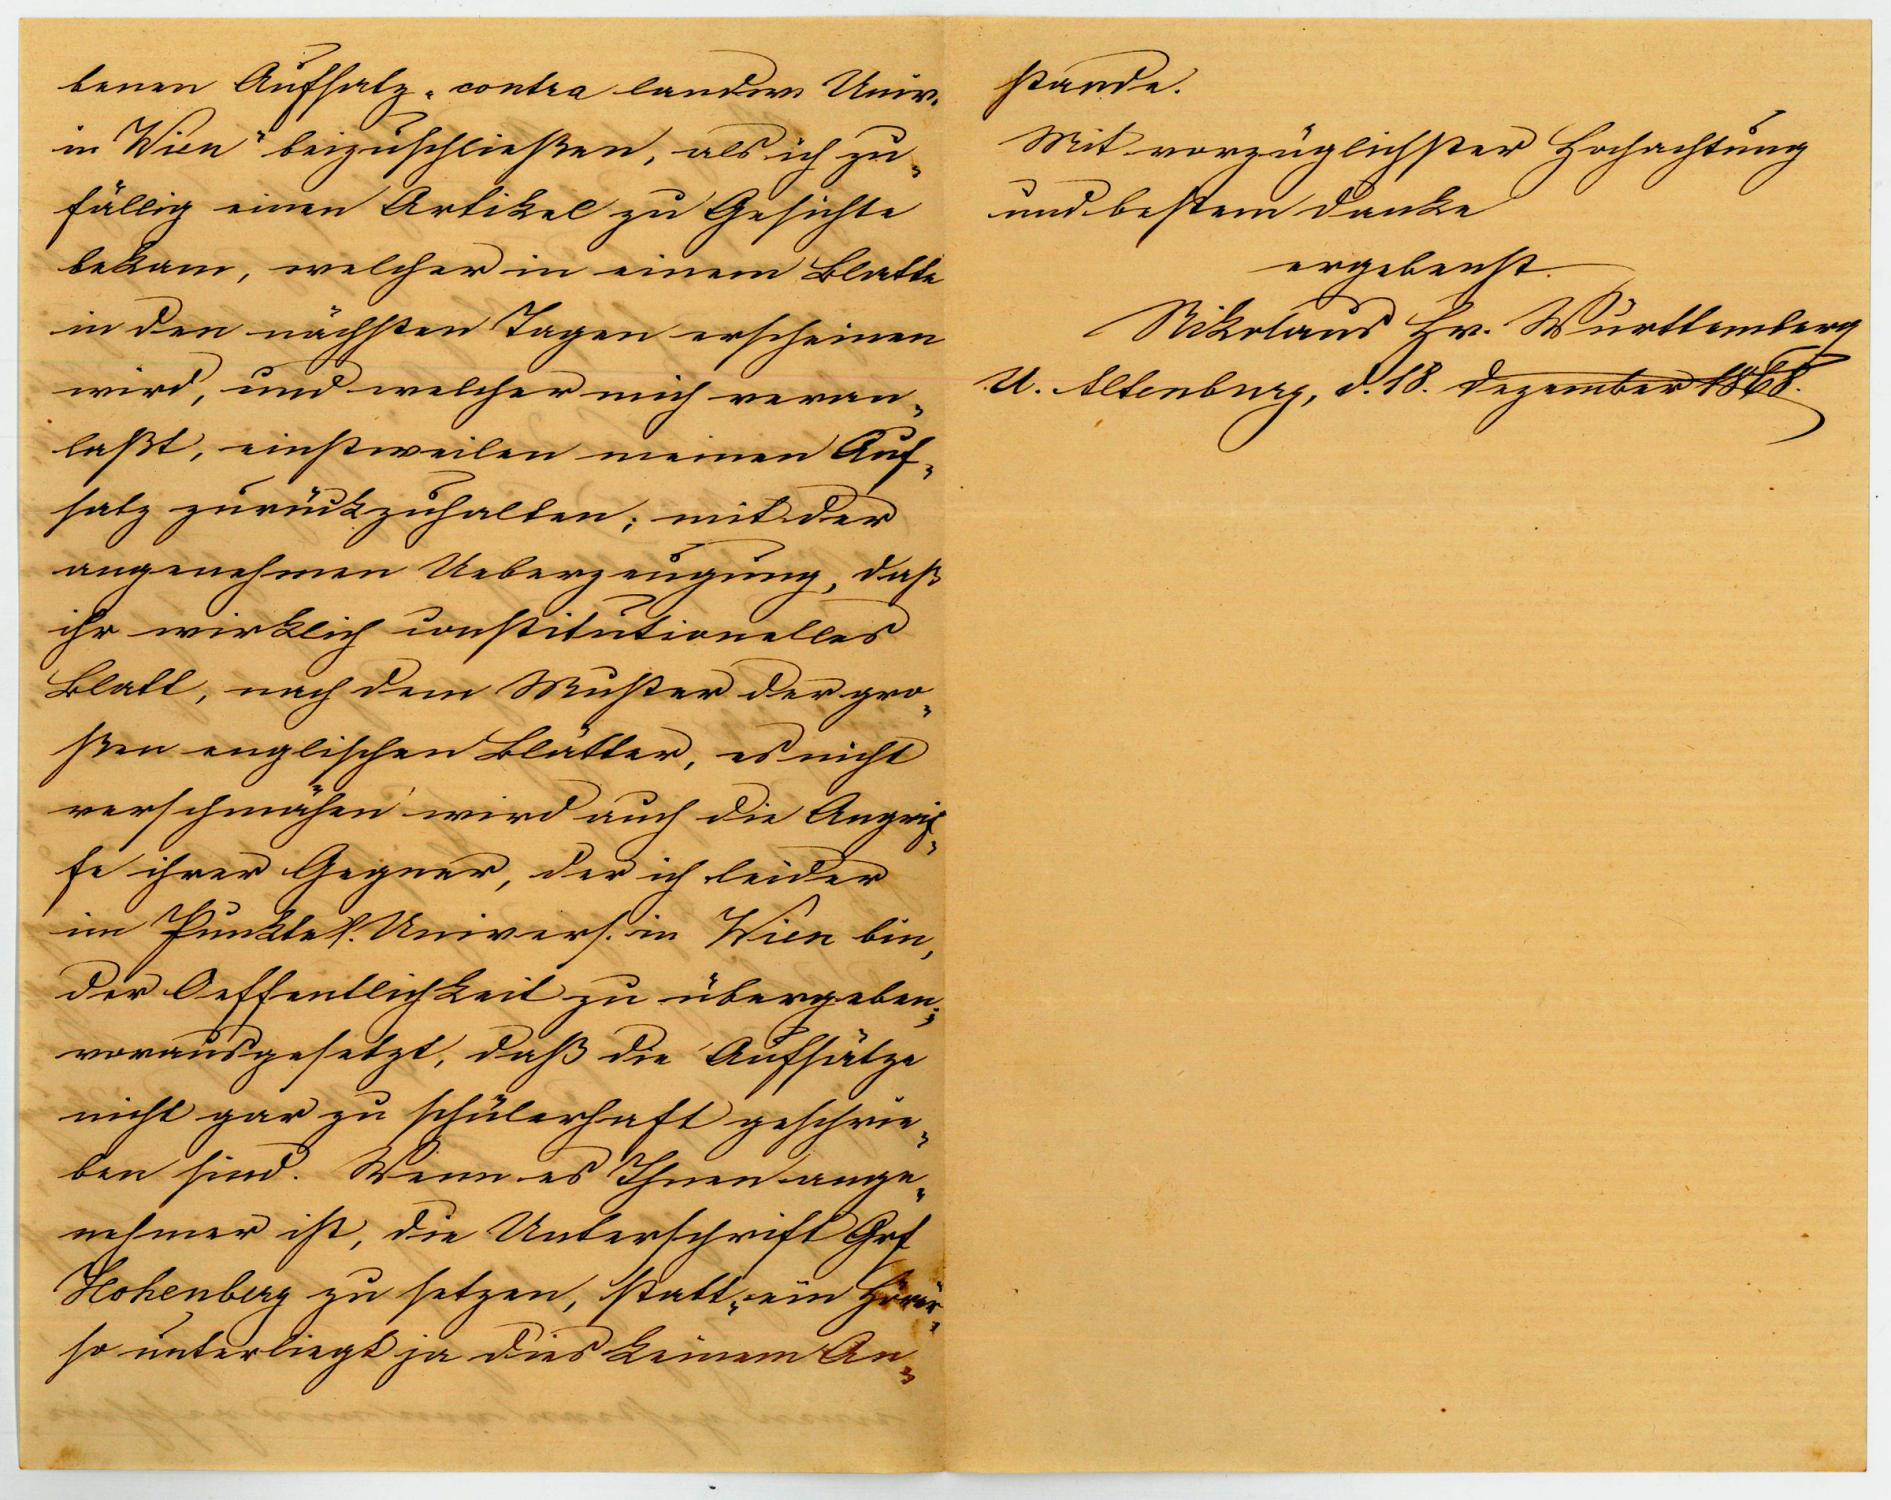 benen Aufsatz „contra landw. Univ.
in Wien“ beizuschließen, als ich zu„
fällig einen Artikel zu Gesichte
bekam, welcher in einem Blatte
in den nächsten Tagen erscheinen
wird, und welcher mich veran„
laßt, einstweilen meinen Auf„
satz zurückzuhalten; mit der
angenehmen Ueberzeugung, daß
ihr wirklich constitutionelles
Blatt, nach dem Muster der gro„
ßen englischen Blätter, es nicht
verschmähen wird auch die Angrif„
fe ihrer Gegner, der ich leider
im Punkte Univers. in Wien bin,
der Oeffentlichkeit zu übergeben;
vorausgesetzt, daß die Aufsätze
nicht gar zu schülerhaft geschrie„
ben sind. Wenn es Ihnen ange„
nehmer ist, die Unterschrift Grf
Hohenberg zu setzen, statt „ein
so unterliegt ja dies keinem An„
stande.
Mit vorzüglichster Hochachtung
und bestem Danke
ergebenst
Nikolaus Hr. Württemberg
U. Altenburg, d. 18. Dezember 1868.